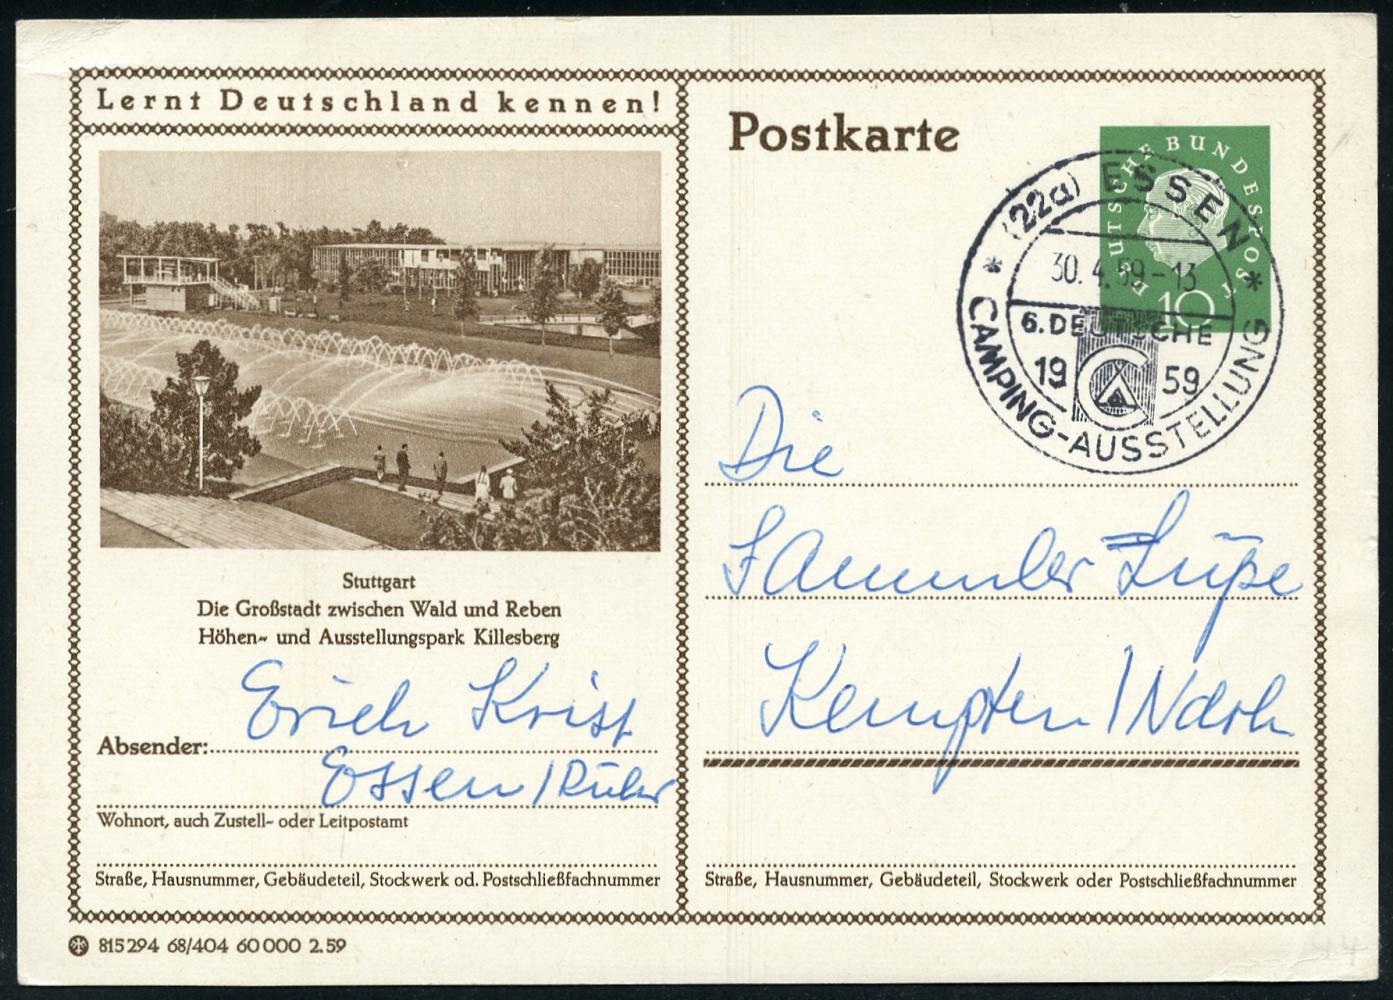 Lernt Deutschland kennen!
Stuttgart
Die Großstadt zwischen Wald und Reben
Höhen- und Ausstellungspark Killesberg
Erich Krist
Absender:
Essen/Ruhr
Wohnort, auch Zustell- oder Leitpostamt
Straße, Hausnummer, Gebäudeteil, Stockwerk od. Postschließfachnummer
815 294 68/404 60 000 2.59
Postkarte
DEUTSCHE BUNDESPOST
10
(22a) ESSEN
30.4.59-13
6. DEUTSCHE
19 59
CAMPING-AUSSTELLUNG
Die
Sammler Lupe
Kempten
Straße, Hausnummer, Gebäudeteil, Stockwerk oder Postschließfachnummer